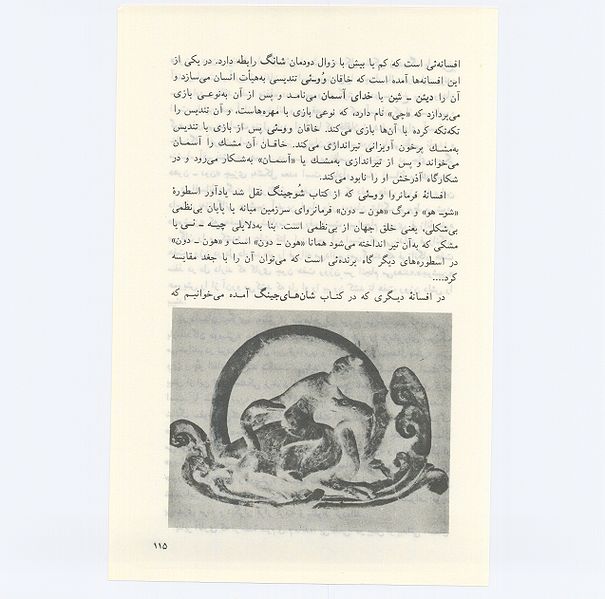 افسانه‌ئی است که کم یا بیش با زوال دودمان شانگ رابطه دارد. در یکی از
این افسانه‌ها آمده است که خاقان وُوـئی تندیسی به‌هیأت انسان می‌سازد و
آن را دیئن ـ شین یا خدای آسمان می‌نامد و پس از آن به‌نوعی بازی
می‌پردازد که «چی» نام دارد، که نوعی بازی با مهره‌هاست، و آن تندیس را
تکه‌تکه کرده با آن‌ها بازی می‌کند. خاقان ووـئی پس از بازی با تندیس
به‌مشک پرخون آویزانی تیراندازی می‌کند. خاقان آن مشك را آسمان
می‌خواند و پس از تیراندازی به‌مشك یا «آسمان» به‌شکار می‌رود و در
شکارگاه آذرخش او را نابود می‌کند.
افسانهٔ فرمانروا ووـئی که از کتاب شُوجینگ نقل شد یادآور اسطورهٔ
«شوـ هو» و مرگ «هون ـ دون» فرمانروای سرزمین میانه یا پایان بی‌نظمی
بی‌شکلی، یعنی خلق جهان از بی‌نظمی است. بنا به‌دلایلی چیـه ـ ئـی یا
مشکی که به‌آن تیر انداخته می‌شود همانا «هون ـ دون» است و «هون ـ دون»
در اسطوره‌های دیگر گاه پرنده‌ئی است که می‌توان آن را با جغد مقایسه
کرد....
در افسانهٔ دیگری که در کتاب شان‌های‌جینگ آمده می‌خوانیم که
۱۱۵